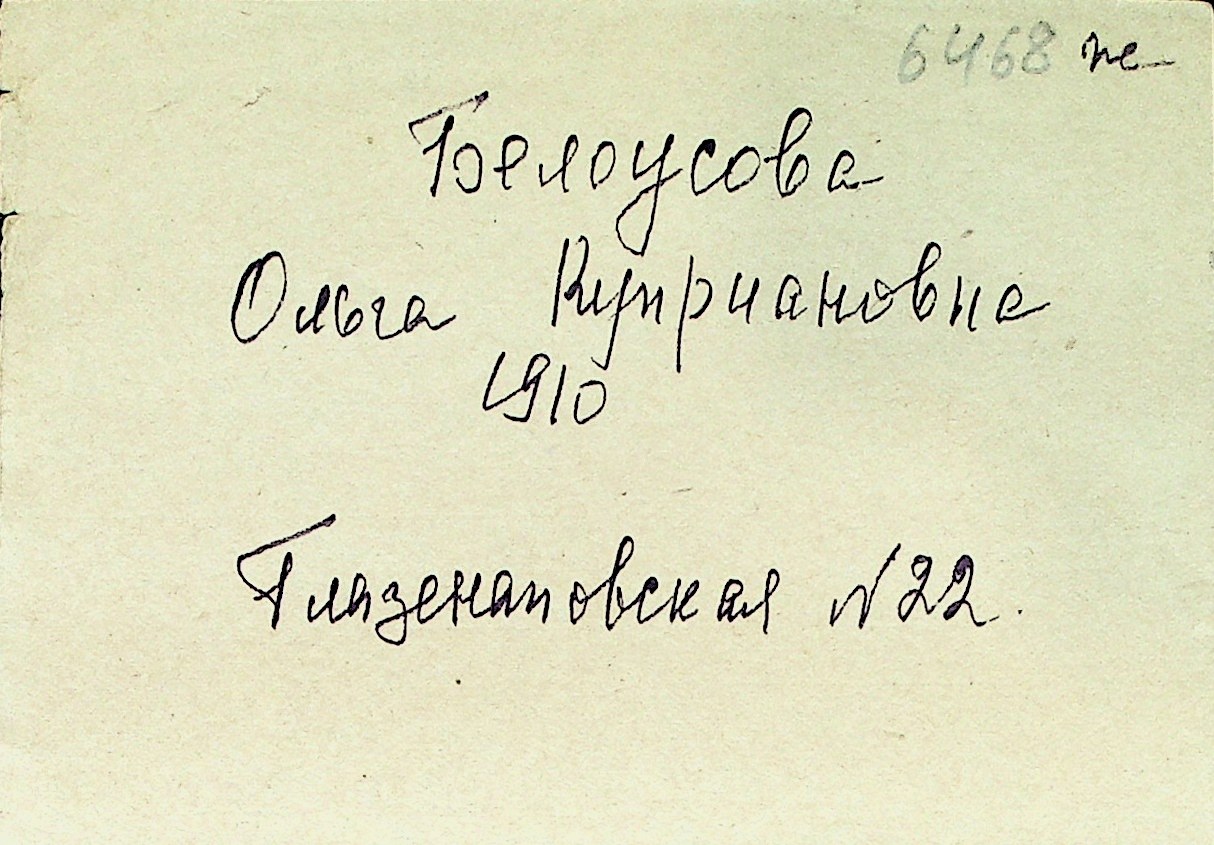 6468 не
Белоусова
Ольга Куприановна
1910
Глазенаповская №22.